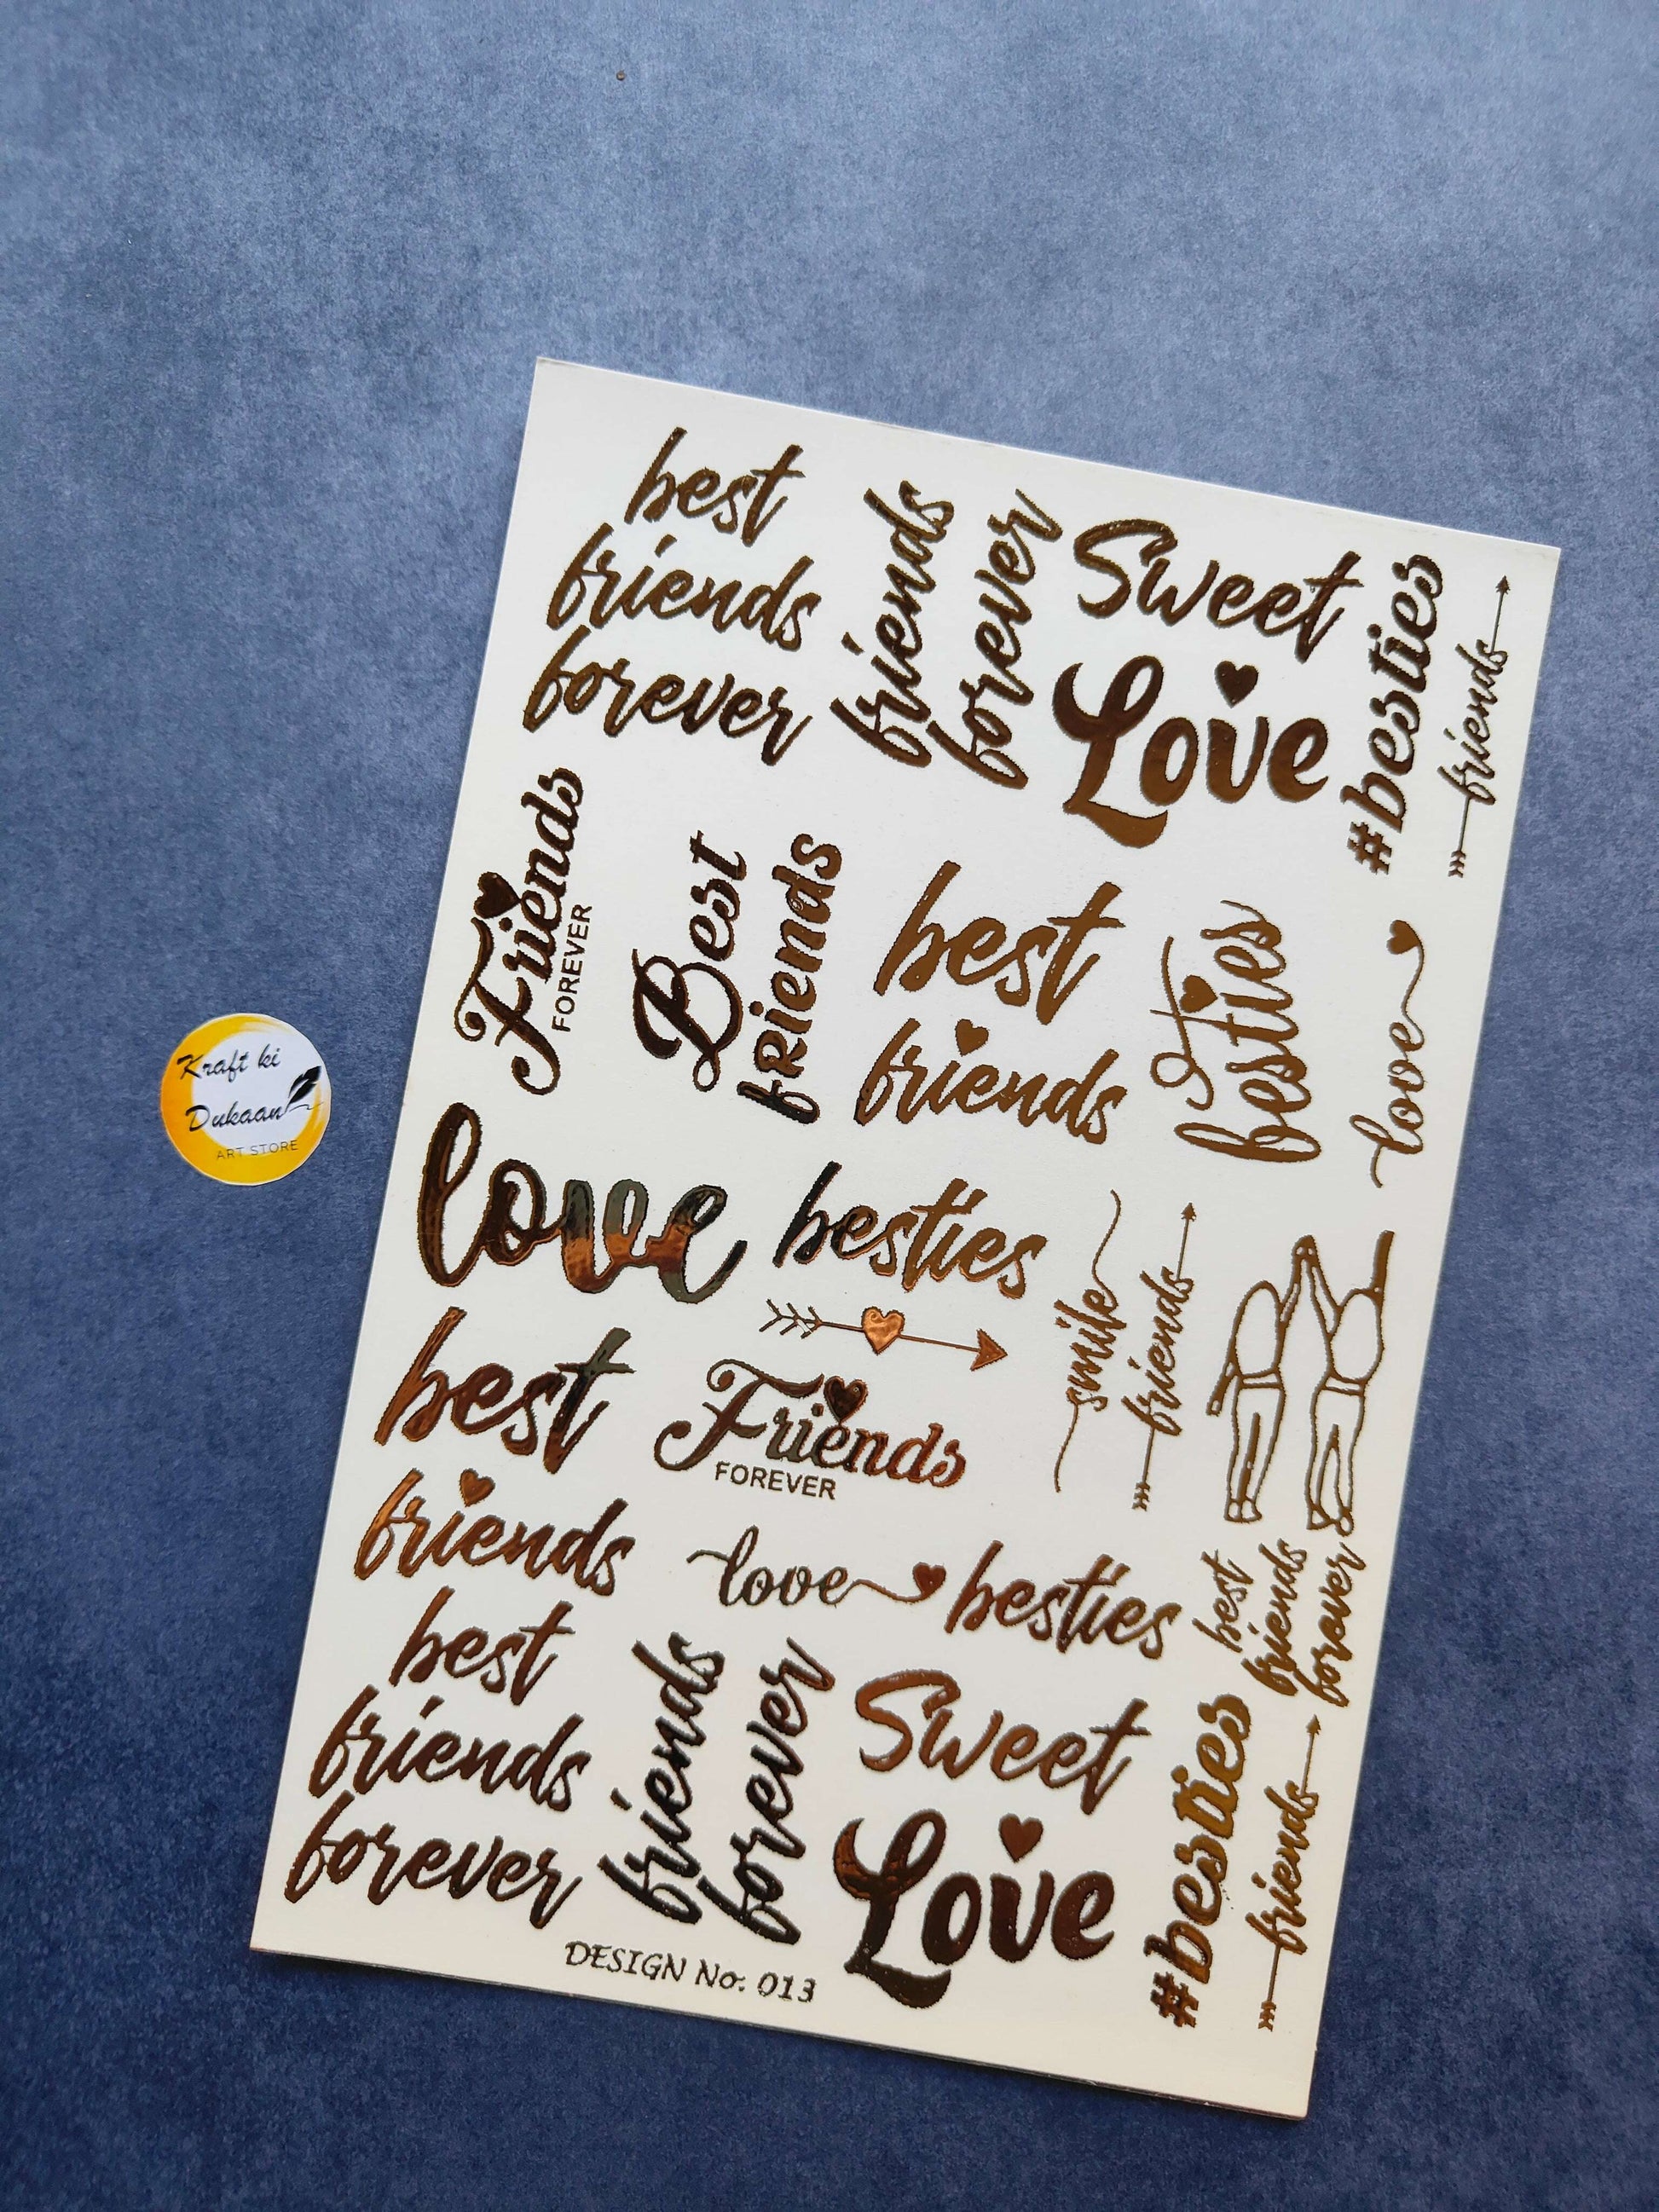 best
friends
forever
friends
forever
Sweet
Love
#besties
friends
Friends
FOREVER
Best
fRiends
best
friends
besties
love
Kraft ki
Dukaan
ART STORE
love
besties
smile
friends
best
friends
Friends
FOREVER
love
besties
best
friends
forever
best
friends
forever
friends
forever
Sweet
Love
#besties
friends
DESIGN No. 013